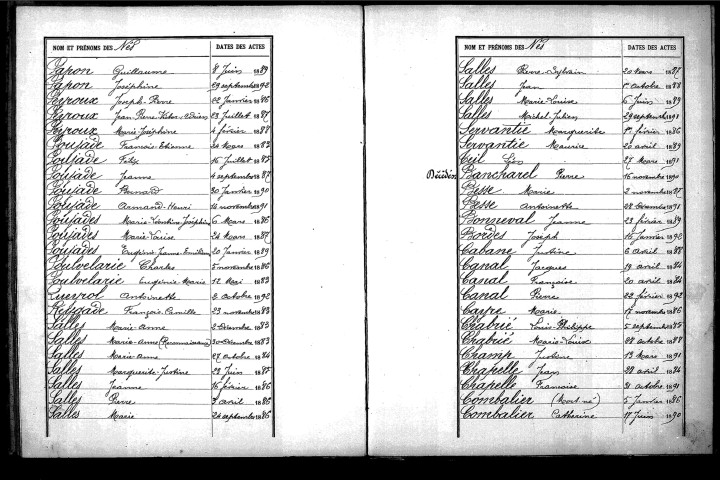 NOM ET PRÉNOMS DES Nés DATES DES ACTES
Papon Guillaume 8 Juin 1889
Papon Joséphine 29 septembre 1892
Peyroux Joseph-Pierre 22 Janvier 1886
Peyroux Jean-Pierre 23 Juillet 1887
Peyroux Marie-Joséphine 4 février 1888
Poujade François-Etienne 24 Mars 1883
Poujade Félix 16 Juillet 1885
Poujade Jeanne 4 septembre 1887
Poujade Bernard 30 Janvier 1890
Poujade Armand-Henri 14 novembre 1891
Poujades Marie-Léontine-Joséphine 6 Mars 1886
Poujades Marie-Louise 24 Mars 1887
Poujades Eugénie-Jeanne-Emilienne 20 Janvier 1889
Pulvelarie Charles 5 novembre 1886
Pulvelarie Eugénie-Marie 12 Mai 1883
Queyrol Antoinette 2 Octobre 1892
Reygade François-Camille 23 novembre 1888
Salles Marie-Anne 2 Décembre 1883
Salles Marie-Anne (Reconnaissance) 30 Décembre 1883
Salles Marie-Anne 27 Octobre 1884
Salles Marguerite-Justine 28 Juin 1885
Salles Jeanne 16 février 1886
Salles Pierre 3 avril 1886
Salles Marie 24 septembre 1886
NOM ET PRÉNOMS DES Nés DATES DES ACTES
Salles Pierre-Sylvain 20 Mars 1887
Salles Jean 1er Octobre 1888
Salles Marie-Louise 6 Juin 1889
Salles Michel-Julien 29 septembre 1891
Servantie Marguerite 1er février 1886
Servantie Maurice 20 avril 1889
Teil Léo 27 Mars 1891
Décédés Bancharel Pierre 16 novembre 1890
Besse Marie 2 novembre 1887
Besse Antoinette 28 Décembre 1891
Bonneval Jeanne 23 février 1889
Bordes Joseph 15 Janvier 1892
Cabane Justine 6 avril 1888
Canal Jacques 19 avril 1884
Canal Françoise 20 avril 1884
Canal Pierre 22 février 1892
Cayre Marie 17 novembre 1886
Chabrié Louis-Philippe 5 septembre 1885
Chabrié Marie-Louise 28 Octobre 1887
Champ Justine 13 Mars 1891
Chapelle Jean 28 avril 1884
Chapelle Françoise 31 Octobre 1891
Combalier (Mort-né) 5 Janvier 1886
Combalier Catherine 17 Juin 1890